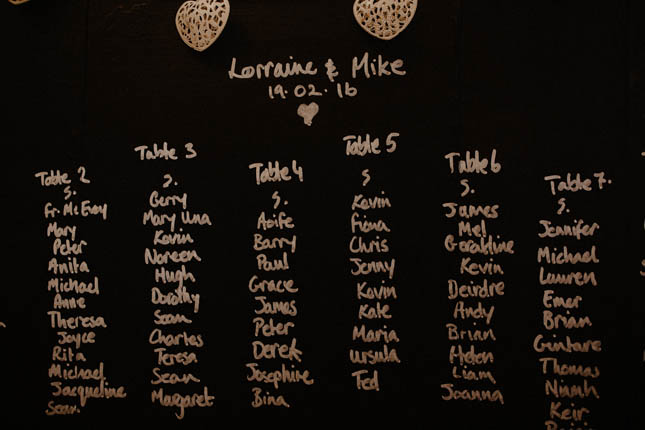 Lorraine & Mike
19.02.16
Table 2
S.
Fr. McEvoy
Mary
Peter
Anita
Michael
Anne
Theresa
Joyce
Rita
Michael
Jacqueline
Sean
Table 3
S.
Gerry
Mary Una
Kevin
Noreen
Hugh
Dorothy
Sean
Charles
Teresa
Sean
Margaret
Table 4
S.
Aoife
Barry
Paul
Grace
James
Peter
Derek
Josephine
Bina
Table 5
S
Kevin
Fiona
Chris
Jenny
Kevin
Kate
Maria
Ursula
Ted
Table 6
S.
James
Mel
Geraldine
Kevin
Deirdre
Andy
Brian
Helen
Liam
Joanna
Table 7.
S.
Jennifer
Michael
Lauren
Emer
Brian
Guntare
Thomas
Niamh
Keir